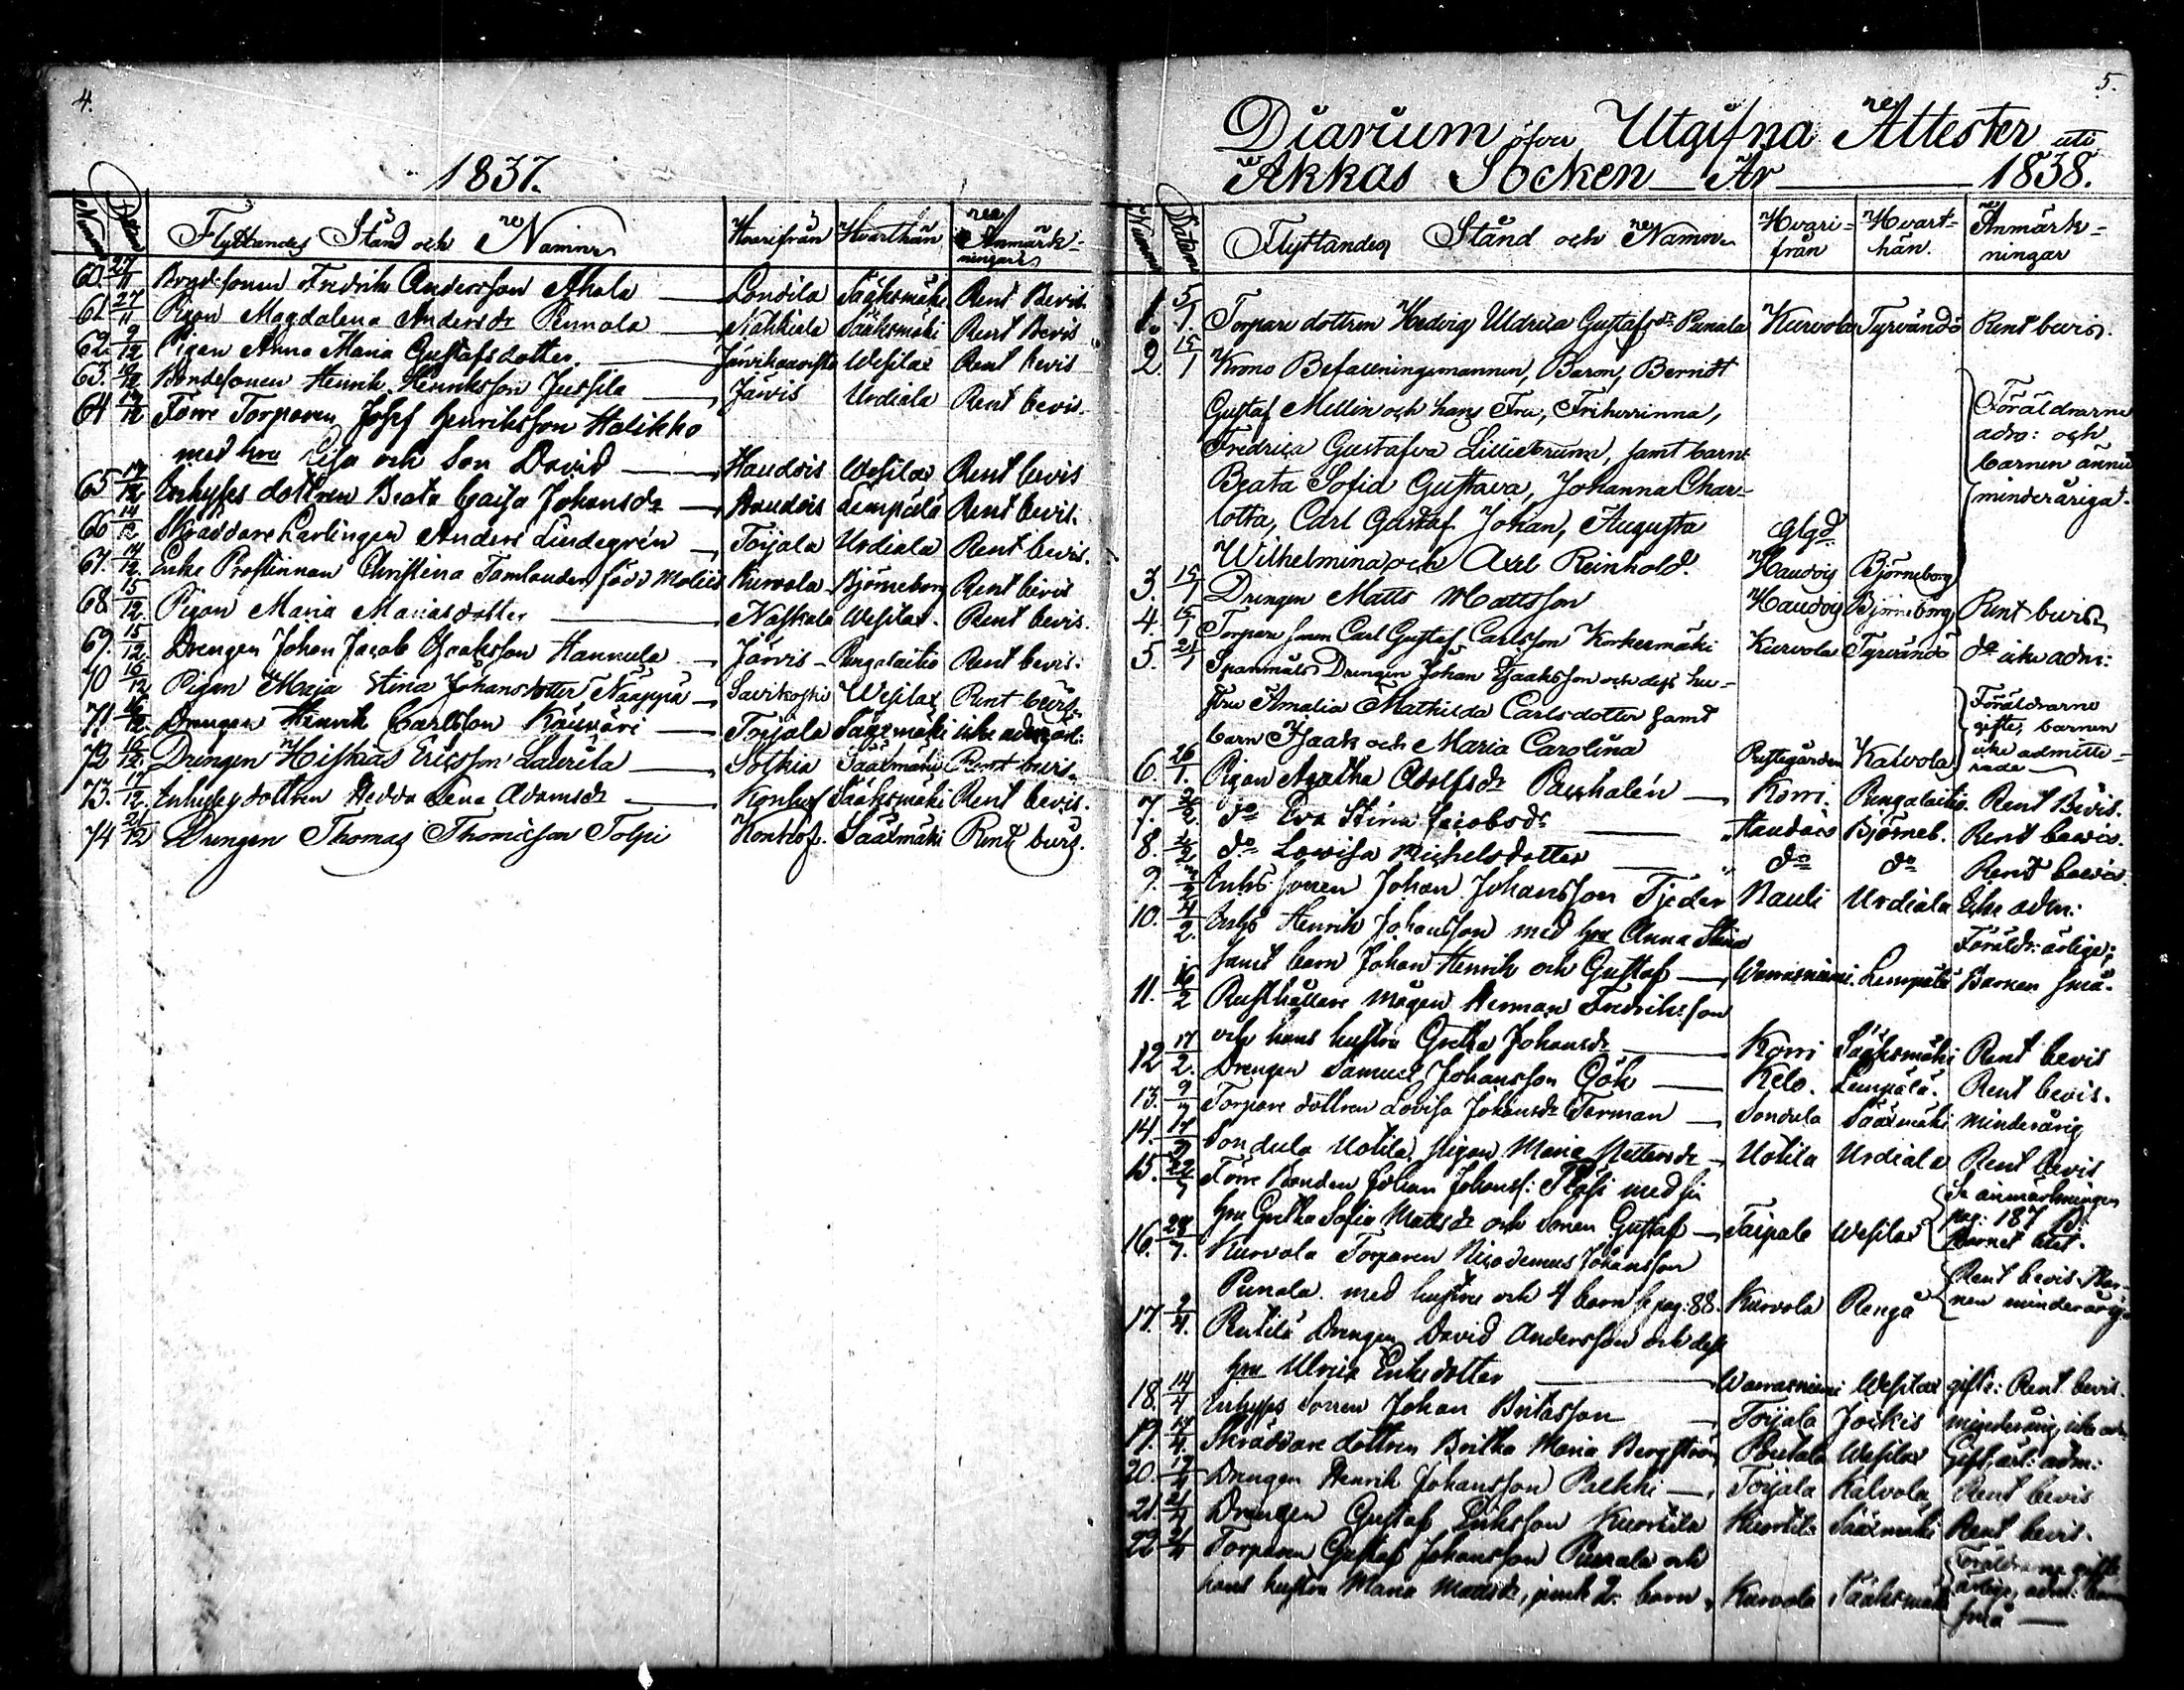 4.
1837.
Numer Datum Flyttandes Stånd och Namn Hvarifrån Hvarthän Anmärk-
ningar
60. 27/11 Bondesonen Fredrik Andersson Ahola — Sondila Sääksmäki Rent Bevis.
61 27/11 Pigan Magdalena Andersdr Pennola — Nahkiala Sääksmäki Rent Bevis
62. 9/12 Pigan Anna Maria Gustafsdotter — Wesilax Rent bevis
63. /12 Bondesonen Henrik Henriksson Jussila — Järvis Urdiala Rent bevis.
64 /12 Förre Torparen Josef Henriksson Halikko
med hru Lisa och Son David — Haudois Wesilax Rent bevis
65 /12 Inhyses dottren Beata Caisa Johansdr — Haudois Lempälä Rent bevis.
66 14/12 Skräddare Lärlingen Anders Lindegrén — Toijala Urdiala Rent bevis.
67. 14/12 Enke Prostinnan Christina Tamlander född Moliis Kurvola Björneborg Rent bevis
68 15/12. Pigan Maria Mariasdotter — Naskala Wesilax. Rent bevis.
69. 15/12 Drengen Johan Jacob Isaaksson Hannula — Järvis Rengolaitio Rent bevis.
70 16/12 Pigan Maja Stina Johansdotter Nääppä — Savikoski Wesilax Rent bevis
71. 16/12. Drengen Henrik Carlsson — Toijala Sääxmäki icke
72 16/12. Drengen Hiskias Ericsson Laurila — Sothia Sääxmäki Rent bevis
73. 17/12. Inhyses dottren Hedda Lena Adamsdr — Konhof Sääksmäki Rent bevis.
74 21/12 Drengen Thomas Thomasson Tolpi Konhof. Sääxmäki Rent bevis.
5.
Diarium öfver Utgifna Attester uti
Akkas Socken År 1838.
Numer Datum Flyttandes Stånd och Namn Hvari-
från Hvart-
hän. Anmärk-
ningar
1. 5/1. Torpare dottren Hedvig Uldrica Gustafsdr Punala Kurvola Tyrvändö Rent bevis.
2. 15/1 Krono Befallningsmannen, Baron, Berndt
Gustaf Mellin och hans Fru, Friherrinna,
Fredrica Gustafva Lilliebrunn, samt barn:
Beata Sofia Gustava, Johanna Char-
lotta, Carl Gustaf Johan, Augusta
Wilhelmina och Axel Reinhold. glgd. Haudois Björneborg Föräldrarne
adm: och
barnen ännu
minderåriga.
3. 15/1 Drengen Matts Mattsson Haudois Björneborg Rent bevis
4. 15/1 Torpare sonen Carl Gustaf Carlsson Korkeemäki Kurvola Tyrvändö do icke adm:
5. 21/1 Spanmåls Drengen Johan Isaaksson och dess hu-
stru Amalia Mathilda Carlsdotter samt
barn Isaak och Maria Carolina Prestegården Kalvola Föräldrarne
gifte, barnen
icke admitte-
rade —
6. 26/1. Pigan Agatha Adolfsdr — Korri. Rengolaitio. Rent Bevis.
7. /2. do Eva Stina Jacobsdr — Haudois Björneb. Rent bevis.
8. /2 do Lovisa Michelsdotter — do do Rent bevis.
9. /2 Inhs. sonen Johan Johansson Tjeder Nauli Urdiala Icke adm:
10. 4/2. Inhs Henrik Johansson med hru Anna Stina
samt barn Johan Henrik och Gustaf — Warrasniemi. Lempälä Föräldr: ärlige;
Barnen små.
11. 16/2 Rusthållare mågen Herman Fredriksson
och hans hustru Gretha Johansdr — Korri Sääksmäki Rent bevis
12 17/2. Drengen Samuel Johansson Gök — Kelo. Lempälä. Rent bevis.
13. 9/ Torpare dottren Lovisa Johansdr Forman — Sondula Sääxmäki minderårig
14. 17/ Sondula Uotila pigan Maria — Uotila Urdiala Rent bevis
15. 22/ Förre Bonden Johan Johanss: med sin
hru Gretha Sofia Mattsdr och sonen Gustaf — Taipale Wesilax Se anmärkningen
pag: 187
Barnet litet.
16. 28/ Kurvola Torparen Nicodemus Johansson
Punala med hustru och 4 barn se pag: 88. Kurvola Rengo Rent bevis. Bar-
nen minderårig:
17. 9/4. Rutila Drengen David Andersson och dess
hru Ulrica Eriksdotter — Warrasniemi Wesilax gifte: Rent bevis.
18. 14/4 Inhyses Sonen Johan Britasson — Toijala Jockis minderårig, icke adm.
19. 14/4. Skräddare dottren Britha Maria Bergström Wesilax Gift, ärl: adm:
20. 17/4 Drengen Henrik Johansson Palkki — Toijala Kalvola Rent bevis
21. 21/4 Drengen Gustaf Eriksson Kurtila Kurtila Sääxmäki Rent bevis.
22 21/4 Torparen Gustaf Johansson Punala och
hans hustru Maria Mattsdr, jemte 2. barn Kurvola Sääksmäki Föräldrarne gifte
ärlige, adm. barn
små —